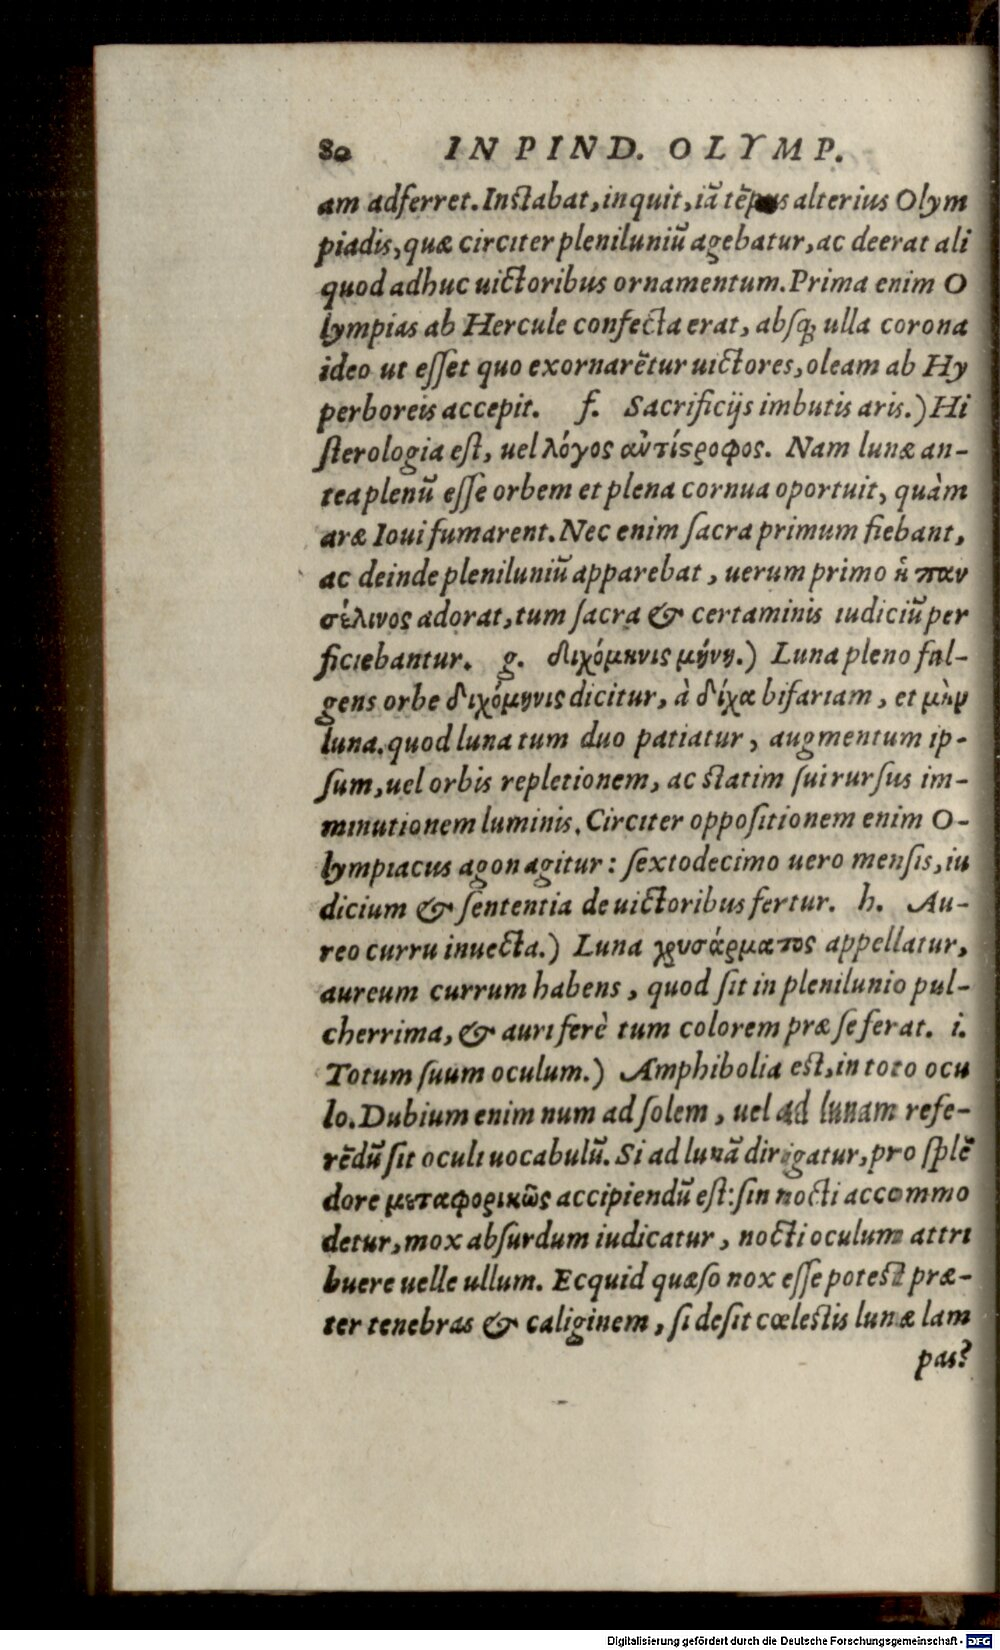 80 IN PIND. OLYMP.
am adferret. Instabat, inquit, iã tẽpus alterius Olym
piadis, quæ circiter pleniluniũ agebatur, ac deerat ali
quod adhuc uictoribus ornamentum. Prima enim O
lympias ab Hercule confecta erat, absq; ulla corona
ideo ut esset quo exornarẽtur uictores, oleam ab Hy
perboreis accepit. f. Sacrificijs imbutis aris.) Hi
sterologia est, uel λόγος ἀντίςροφος. Nam lunæ an-
tea plenũ esse orbem et plena cornua oportuit, quàm
aræ Ioui fumarent. Nec enim sacra primum fiebant,
ac deinde pleniluniũ apparebat, uerum primo ἡ παν
σέλινος adorat, tum sacra & certaminis iudiciũ per
ficiebantur. g. διχόμηνις μήνη.) Luna pleno ful-
gens orbe διχόμηνις dicitur, à δίχα bifariam, et μὴν
luna. quod luna tum duo patiatur, augmentum ip-
sum, uel orbis repletionem, ac statim sui rursus im-
minutionem luminis. Circiter oppositionem enim O-
lympiacus agon agitur: sextodecimo uero mensis, iu
dicium & sententia de uictoribus fertur. h. Au-
reo curru inuecta.) Luna χρυσάρματος appellatur,
aureum currum habens, quod sit in plenilunio pul-
cherrima, & auri ferè tum colorem præ se ferat. i.
Totum suum oculum.) Amphibolia est, in toto ocu
lo. Dubium enim num ad solem, uel ad lunam refe-
rẽdũ sit oculi uocabulũ. Si ad lunã dirigatur, pro splẽ
dore μεταφορικῶς accipiendũ est: sin nocti accommo
detur, mox absurdum iudicatur, nocti oculum attri
buere uelle ullum. Ecquid quæso nox esse potest præ-
ter tenebras & caliginem, si desit cœlestis lunæ lam
pas?
Digitalisierung gefördert durch die Deutsche Forschungsgemeinschaft - DFG